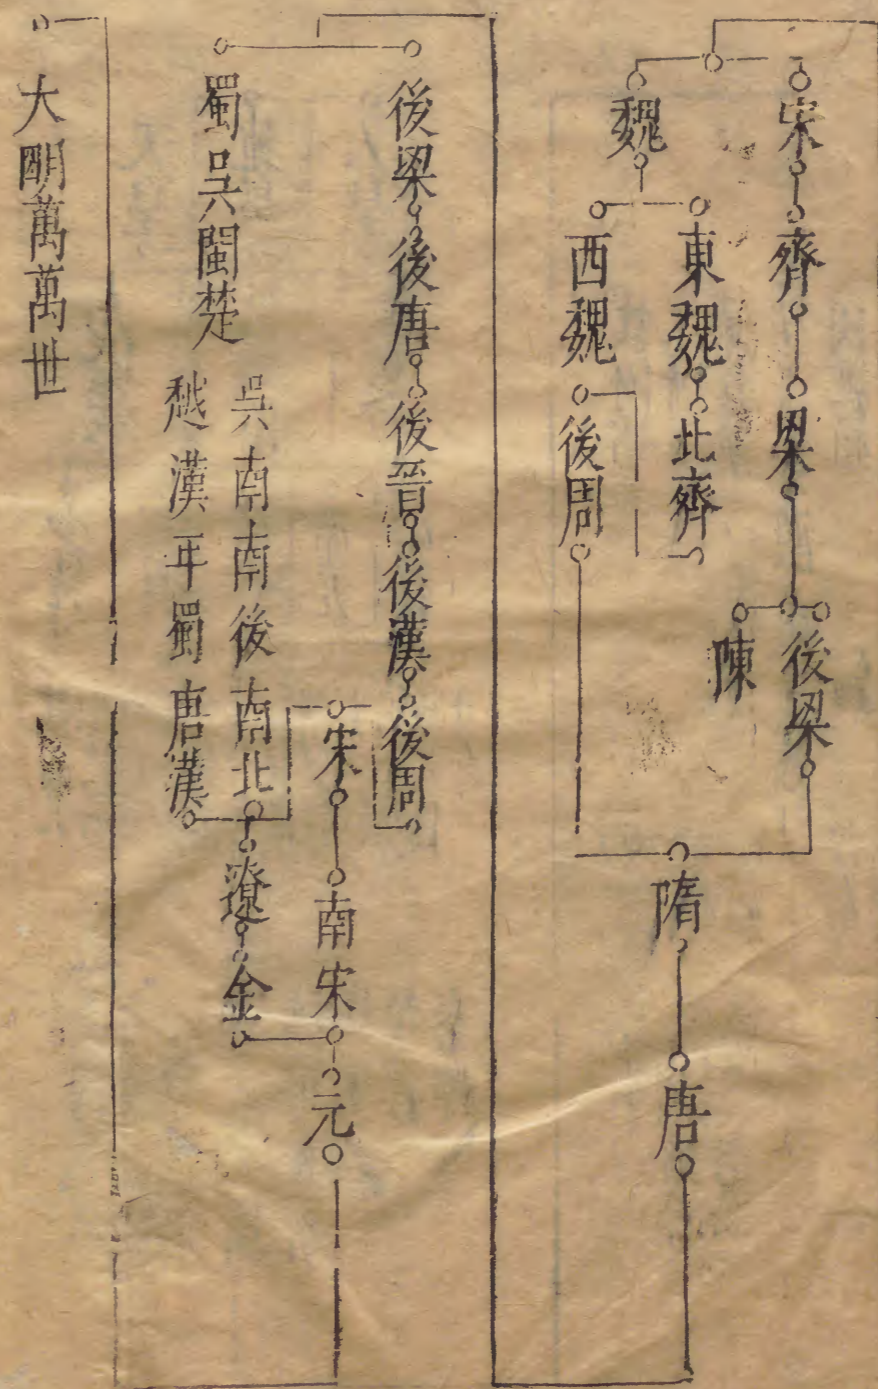 宋齊梁後梁
陳
魏東魏北齊
西魏後周
隋唐
後梁後唐後晉後漢後周
蜀吳閩楚
吳南南後南北
越漢平蜀唐漢
宋南宋元
遼金
大明萬萬世